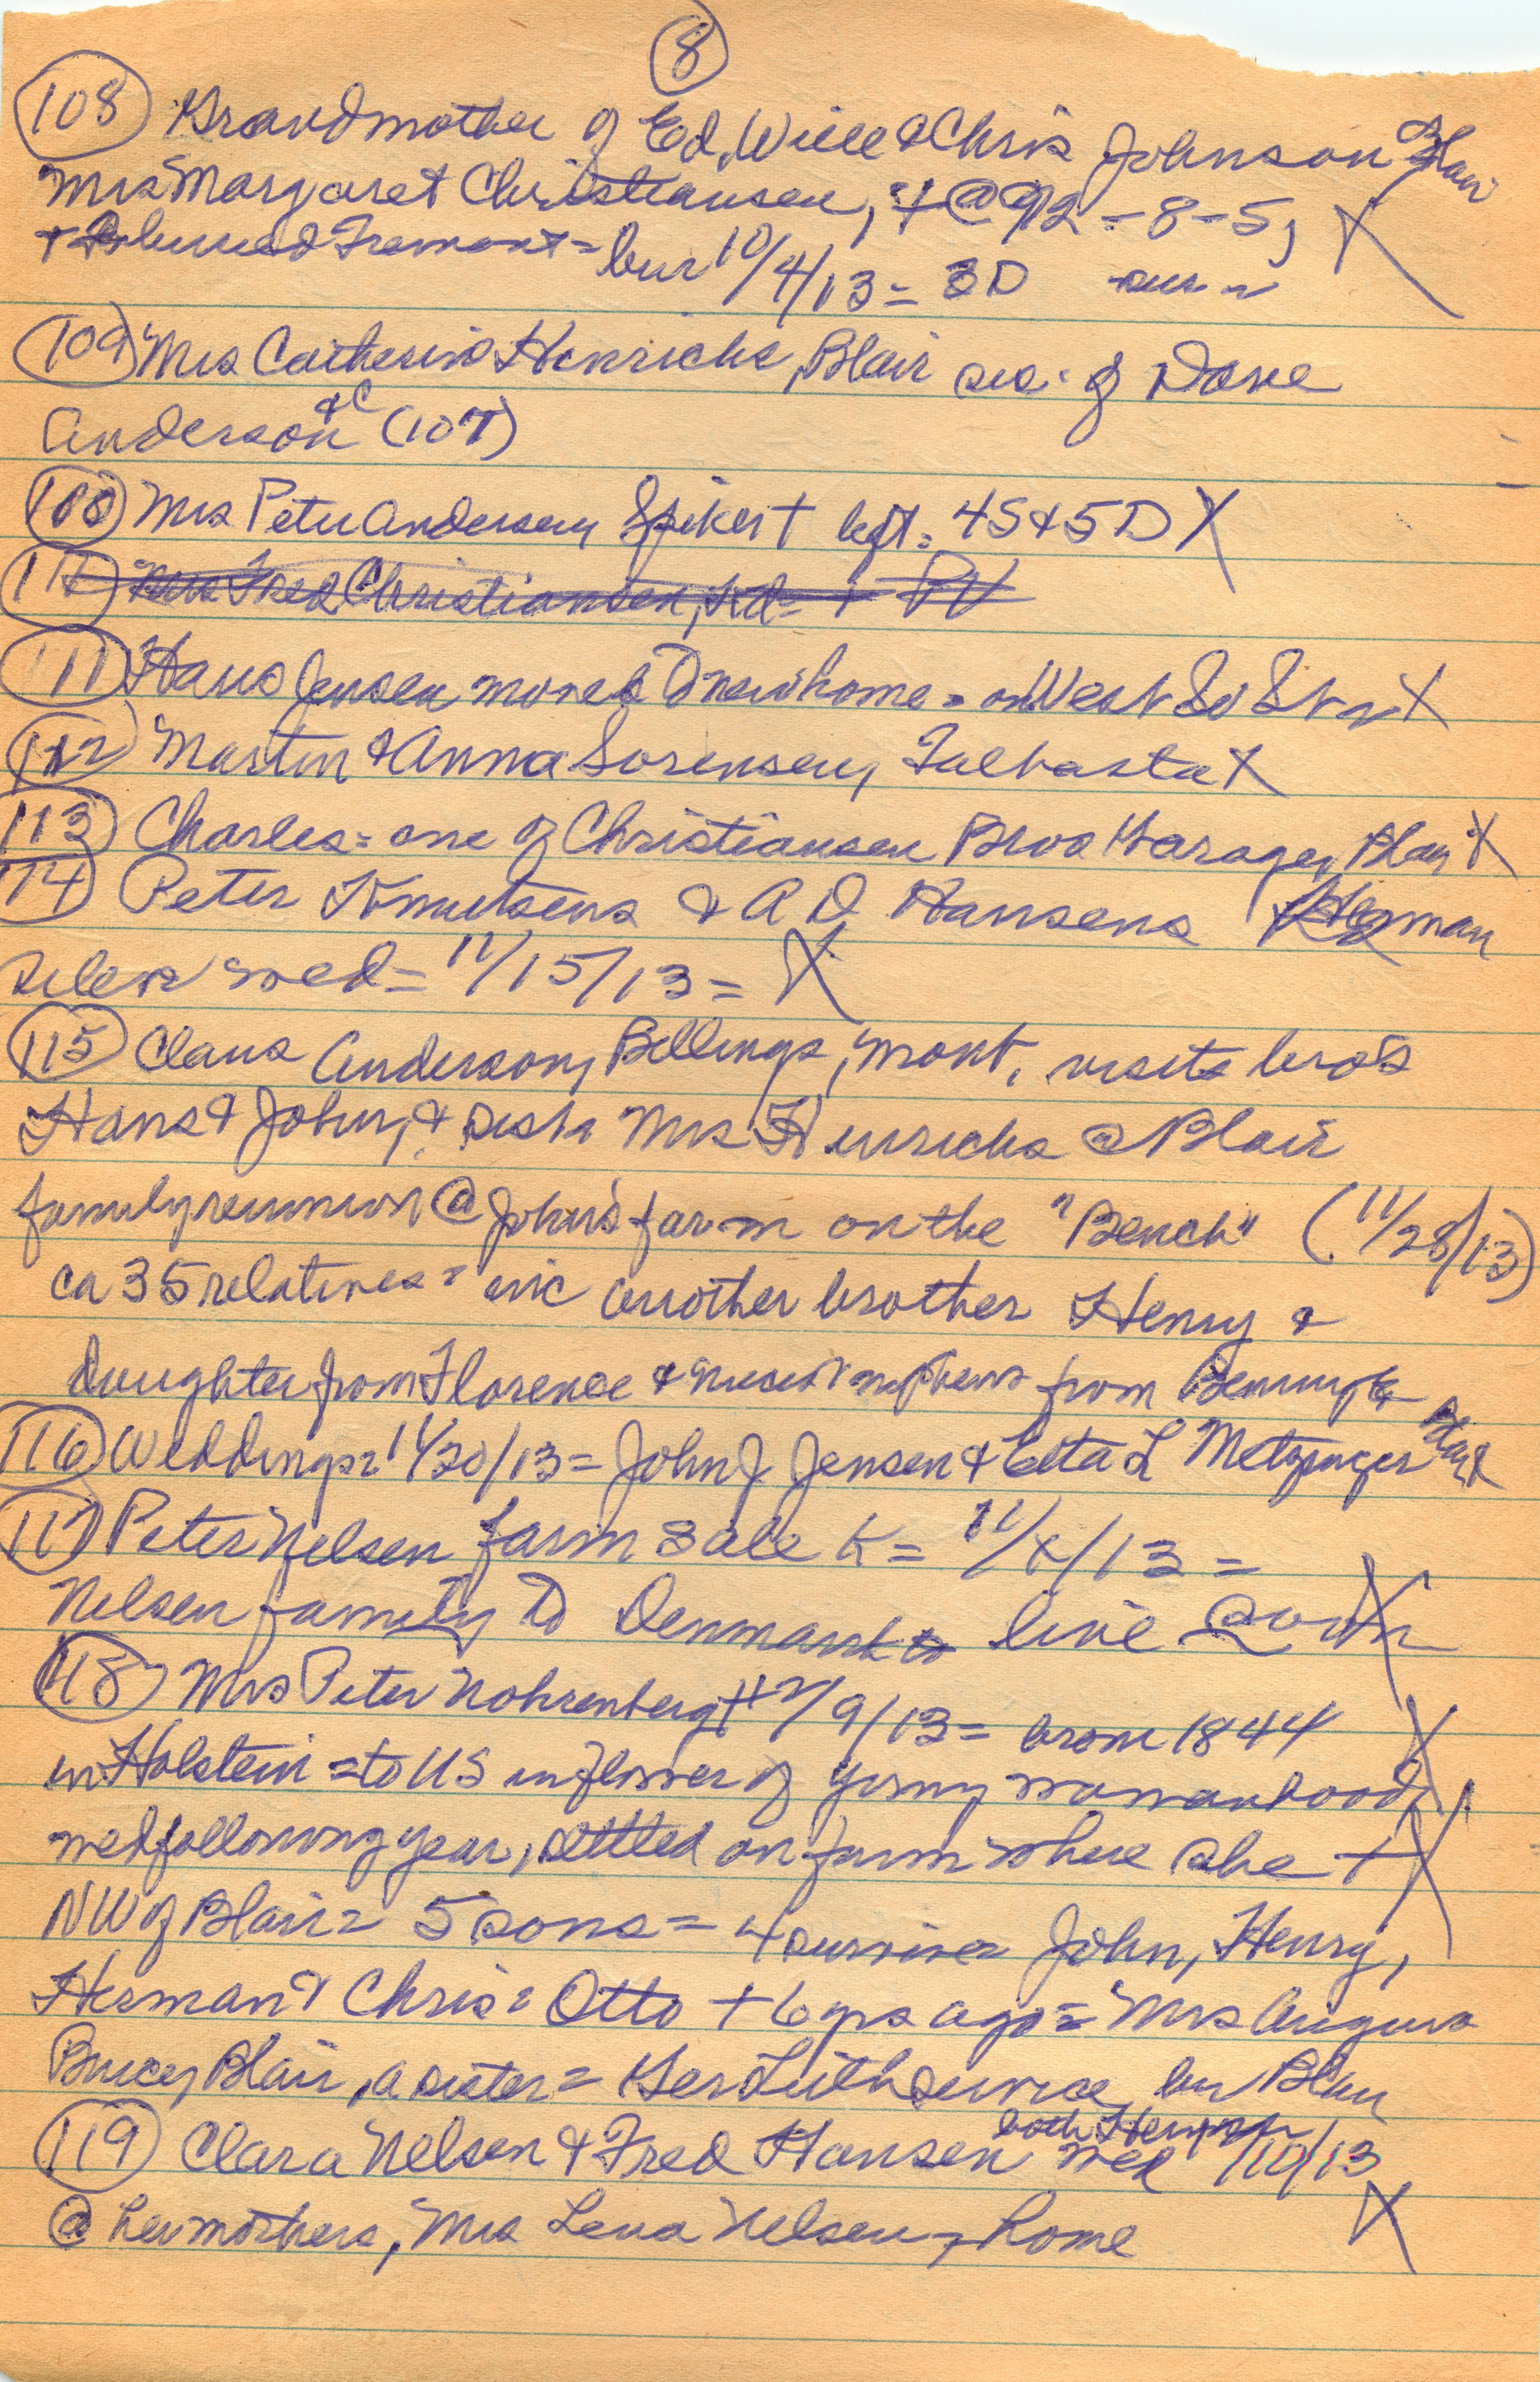 8
108 Grandmother of Ed, Will & Chris Johnson Blair
Mrs Margaret Christiansen, + @ 92-8-5,
Fremont = bur 10/4/13 = 3D sur
109 Mrs Catherine Henrichs, Blair sis. of Dave
Anderson &C (107)
108 Mrs Peter Andersen, Spiker + left = 4S & 5D X
Mrs Fred Christiansen,
111 Hans Jensen moves to new home = on West So St X
112 Martin & Anna Sorensen, Talbasta X
113 Charles = one of Christiansen Bros Garage, Blair X
114 Peter Knutsens & A D Hansens Herman
silver wed = 11/15/13 = X
115 Claus Anderson, Billings, Mont, visits bros
Hans & John, & sister Mrs Hinrichs @ Blair
family reunion @ John's farm on the "Bench" (11/28/13)
ca 35 relatives = inc another brother Henry &
daughter from Florence & nieces & nephews from Benningt
116 Weddings = 11/30/13 = John J Jensen & Etta L Metzinger
117 Peter Nelsen farm sale K = 11/x/13 =
Nelsen family to Denmark to live X
118 Mrs Peter Nohrenberg + 12/9/13 = born 1844 X
in Holstein = to US in flower of young womanhood,
wed following year, settled on farm where she + X
NW of Blair = 5 sons = 4 survive = John, Henry,
Herman & Chris = Otto + 6 yrs ago = Mrs
Blair, a sister = Ger Luth service bur Blair
119 Clara Nelsen & Fred Hansen both Herman wed /10/13
@ her mothers, Mrs Lena Nelsen, home X